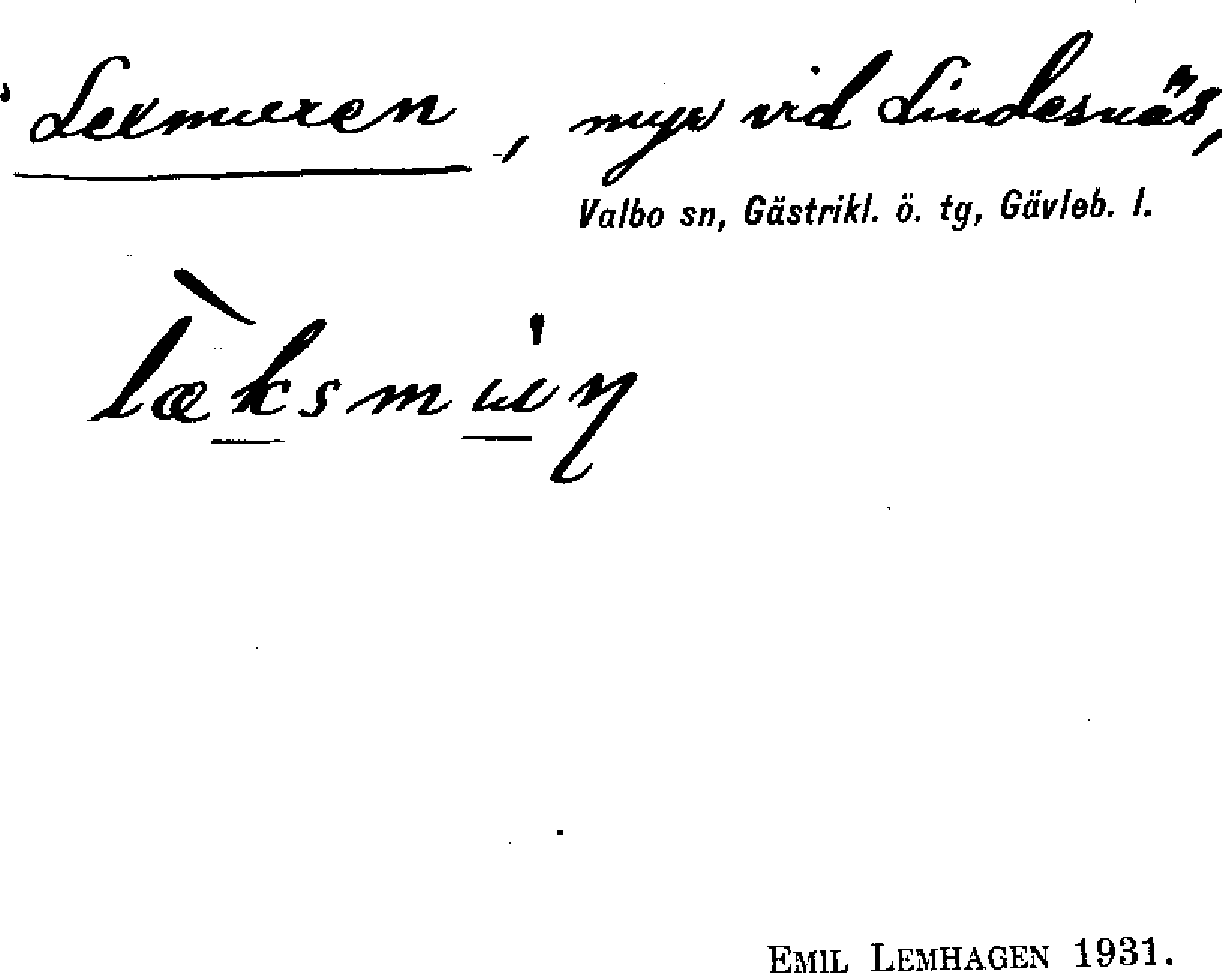 Lexmuren, myr vid Lindesnäs,
Valbo sn, Gästrikl. ö. tg, Gävleb. l.
EMIL LEMHAGEN 1931.